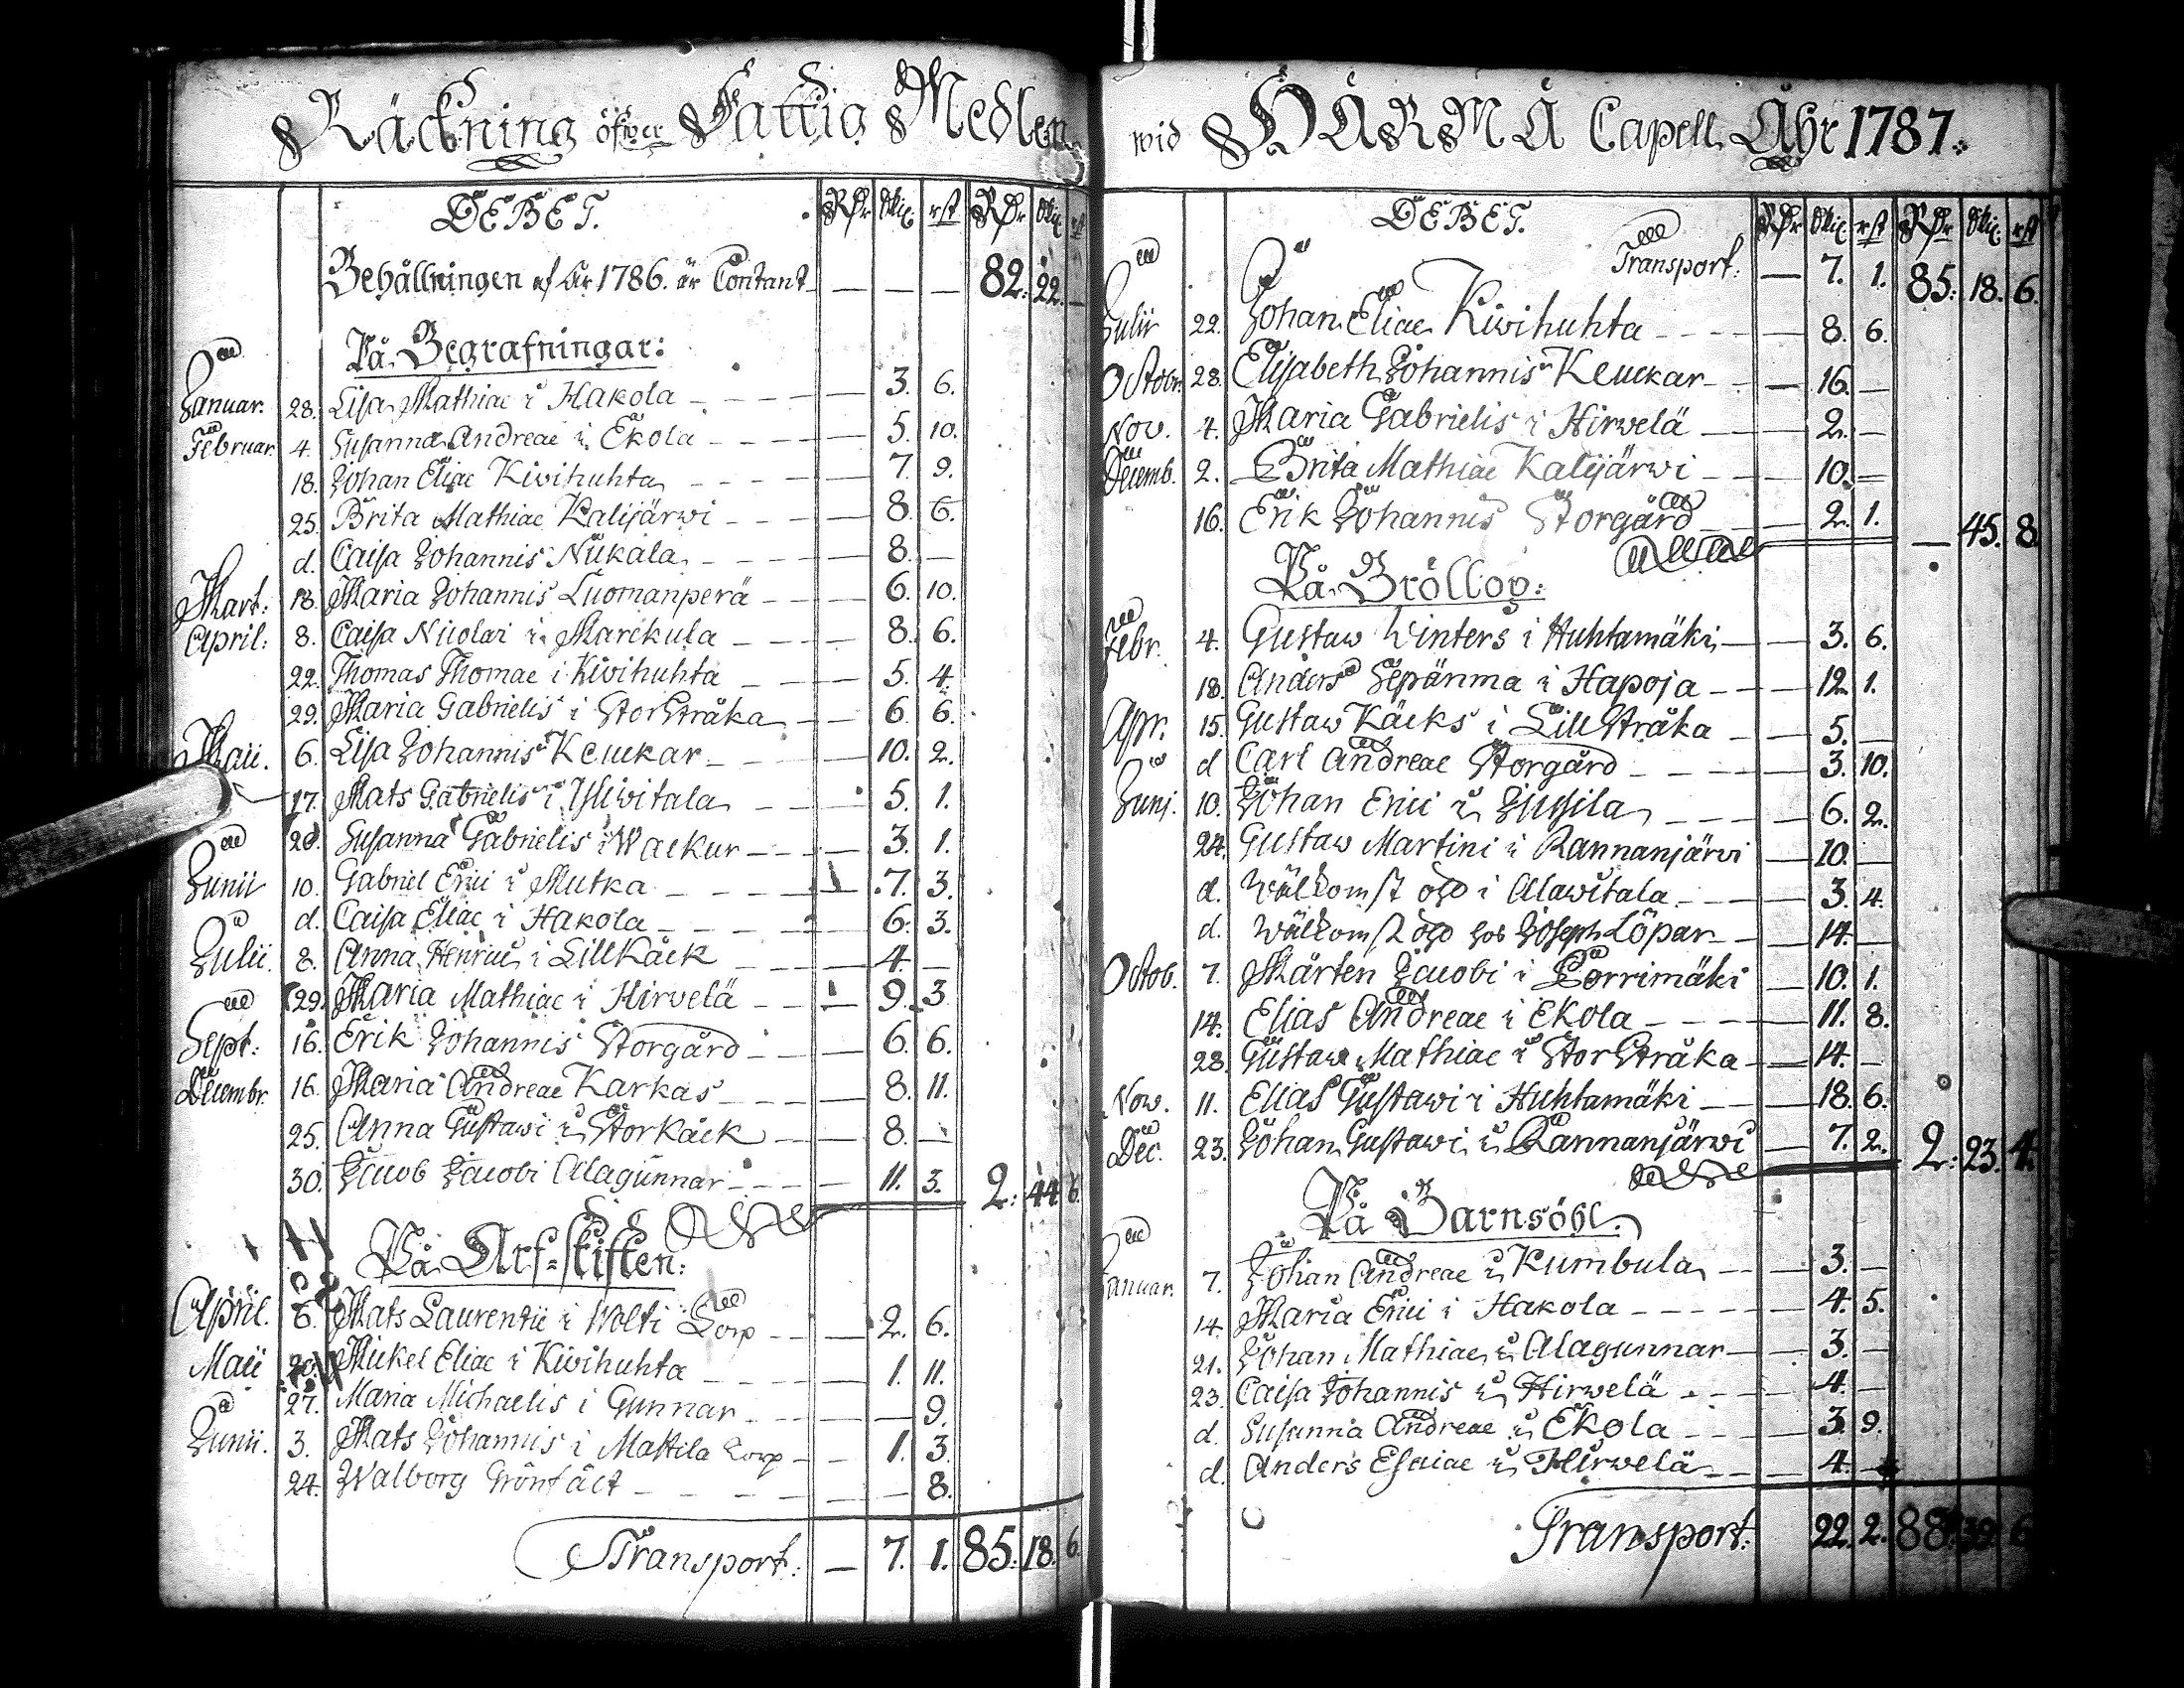 Räckning öfwer Fattig Medlen
DEBET. RDr skil. rst RDr skil. rst
Behållningen af År 1786. är Contant — — — 82: 22. —
På Begrafningar:
Januar. 28. Lisa Mathiae i Hakola — 3. 6.
Februar. 4. Susanna Andreae i Ekola — 5. 10.
18. Johan Eliae Kiwihuhta — 7. 9.
25. Brita Mathiae Kalijärwi — 8. 6.
d. Caisa Johannis Niikala — 8. —
Mart: 18. Maria Johannis Luomanperä — 6. 10.
April: 8. Caisa Nicolai i Marckula — 8. 6.
22. Thomas Thomae i Kiwihuhta — 5. 4.
29. Maria Gabrielis i StorStråka — 6. 6.
Maii. 6. Lisa Johannis Keuckar — 10. 2.
17. Mats Gabrielis i Yliwitala — 5. 1.
20. Susanna Gabrielis i Wackur — 3. 1.
Junii 10. Gabriel Erici i Mutka — 7. 3.
d. Caisa Eliae i Hakola — 6. 3.
Julii. 8. Anna Henrici i LillKäck — 4. —
29. Maria Mathiae i Hirwelä — 9. 3.
Sept: 16. Erik Johannis Storgård — 6. 6.
Decembr. 16. Maria Andreae Karkas — 8. 11.
25. Anna Gustawi i StorKäck — 8. —
30. Jacob Jacobi Alagunnar — 11. 3. 2: 44. 6.
På Arf-skiften:
April. 6. Mats Laurentii i Wolti Torp — 2. 6.
Maii 20. Mickel Eliae i Kiwihuhta — 1. 11.
27. Maria Michaelis i Gunnar — 9.
Junii. 3. Mats Johannis i Mattila Torp — 1. 3.
24. Walborg Grönfält — 8.
Transport: — 7. 1. 85: 18. 6.
wid HÄRMÄ Capell Åhr 1787.
DEBET. RDr skil. rst RDr skil. rst
Transport: — 7. 1. 85: 18. 6.
Julii 22. Johan Eliae Kiwihuhta — 8. 6.
Octobr. 28. Elisabeth Johannis Keuckar — 16. —
Nov. 4. Maria Gabrielis i Hirwelä — 2. —
Decemb. 2. Brita Mathiae Kalijärwi — 10. —
16. Erik Johannis Storgård — 2. 1. — 45. 8.
På Bröllop:
Febr. 4. Gustaw Winters i Huhtamäki — 3. 6.
18. Anders Sepänma i Hapoja — 12. 1.
Apr. 15. Gustaw Käcks i LillStråka — 5. —
d Carl Andreae Storgård — 3. 10.
Junj. 10. Johan Erici i Jussila — 6. 2.
24. Gustaw Martini i Rannanjärvi — 10. —
d. Wälkomst öhl i Alawitala — 3. 4.
d. Wälkomst öhl hos Joseph Löpar — 14. —
Octob. 7. Mårten Jacobi i Porrimäki — 10. 1.
14. Elias Andreae i Ekola — 11. 8.
28. Gustaw Mathiae i StorStråka — 14. —
Now. 11. Elias Gustawi i Huhtamäki — 18. 6.
Dec. 23. Johan Gustawi i Rannanjärwi — 7. 2. 2: 23. 4.
På Barnsöhl.
Januar. 7. Johan Andreae i Kumbula — 3. —
14. Maria Erici i Hakola — 4. 5.
21. Johan Mathiae i Alagunnar — 3. —
23. Caisa Johannis i Hirwelä — 4. —
d. Susanna Andreae i Ekola — 3. 9.
d. Anders Esaiae i Hirwelä — 4. —
Transport: 22. 2. 88: 39. 6